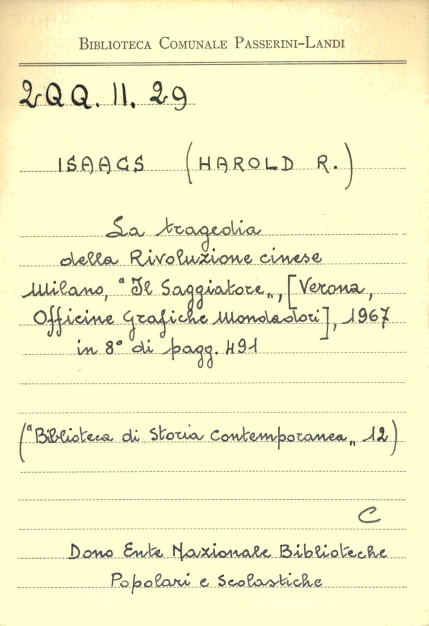 BIBLIOTECA COMUNALE PASSERINI-LANDI
2QQ. II. 29
ISAACS (HAROLD R.)
La tragedia
della Rivoluzione cinese
Milano, "Il Saggiatore„, [Verona,
Officine Grafiche Mondadori], 1967
in 8° di pagg. 491
("Biblioteca di Storia Contemporanea„ 12)
C
Dono Ente Nazionale Biblioteche
Popolari e Scolastiche